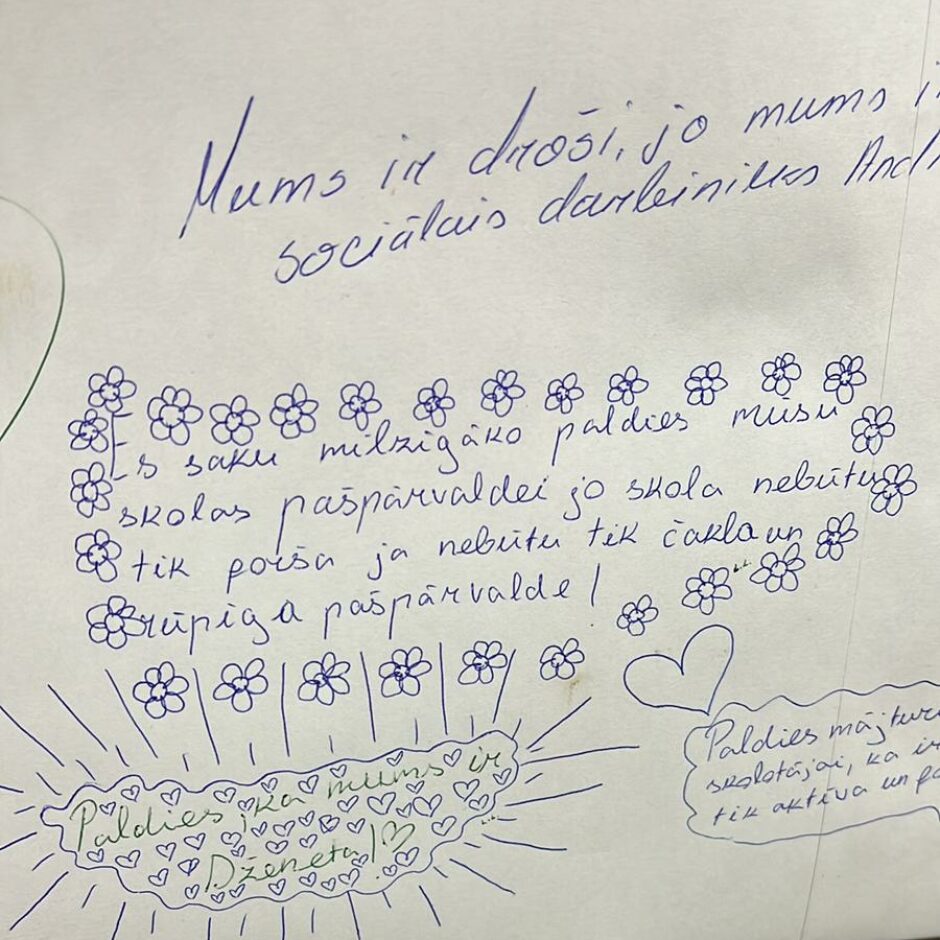 Mums ir droši, jo mums
sociālais darbinieks
Es saku milzīgāko paldies mūsu
skolas pašpārvaldei jo skola nebūtu
tik poša ja nebūtu tik čakla un
rūpīga pašpārvalde!
Paldies, ka mums ir
Dženeta!
Paldies
skolotājai, ka
tik aktīva un